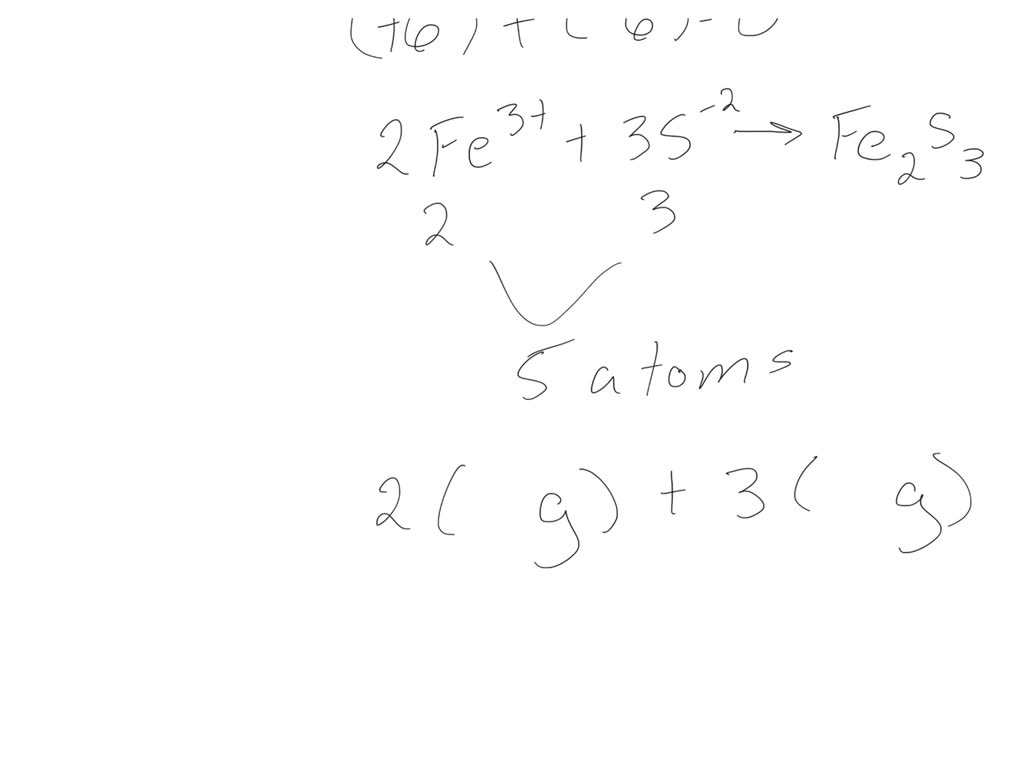 2Fe³⁺ + 3S⁻² → Fe₂S₃
2 3
5 atoms
2( g) + 3( g)